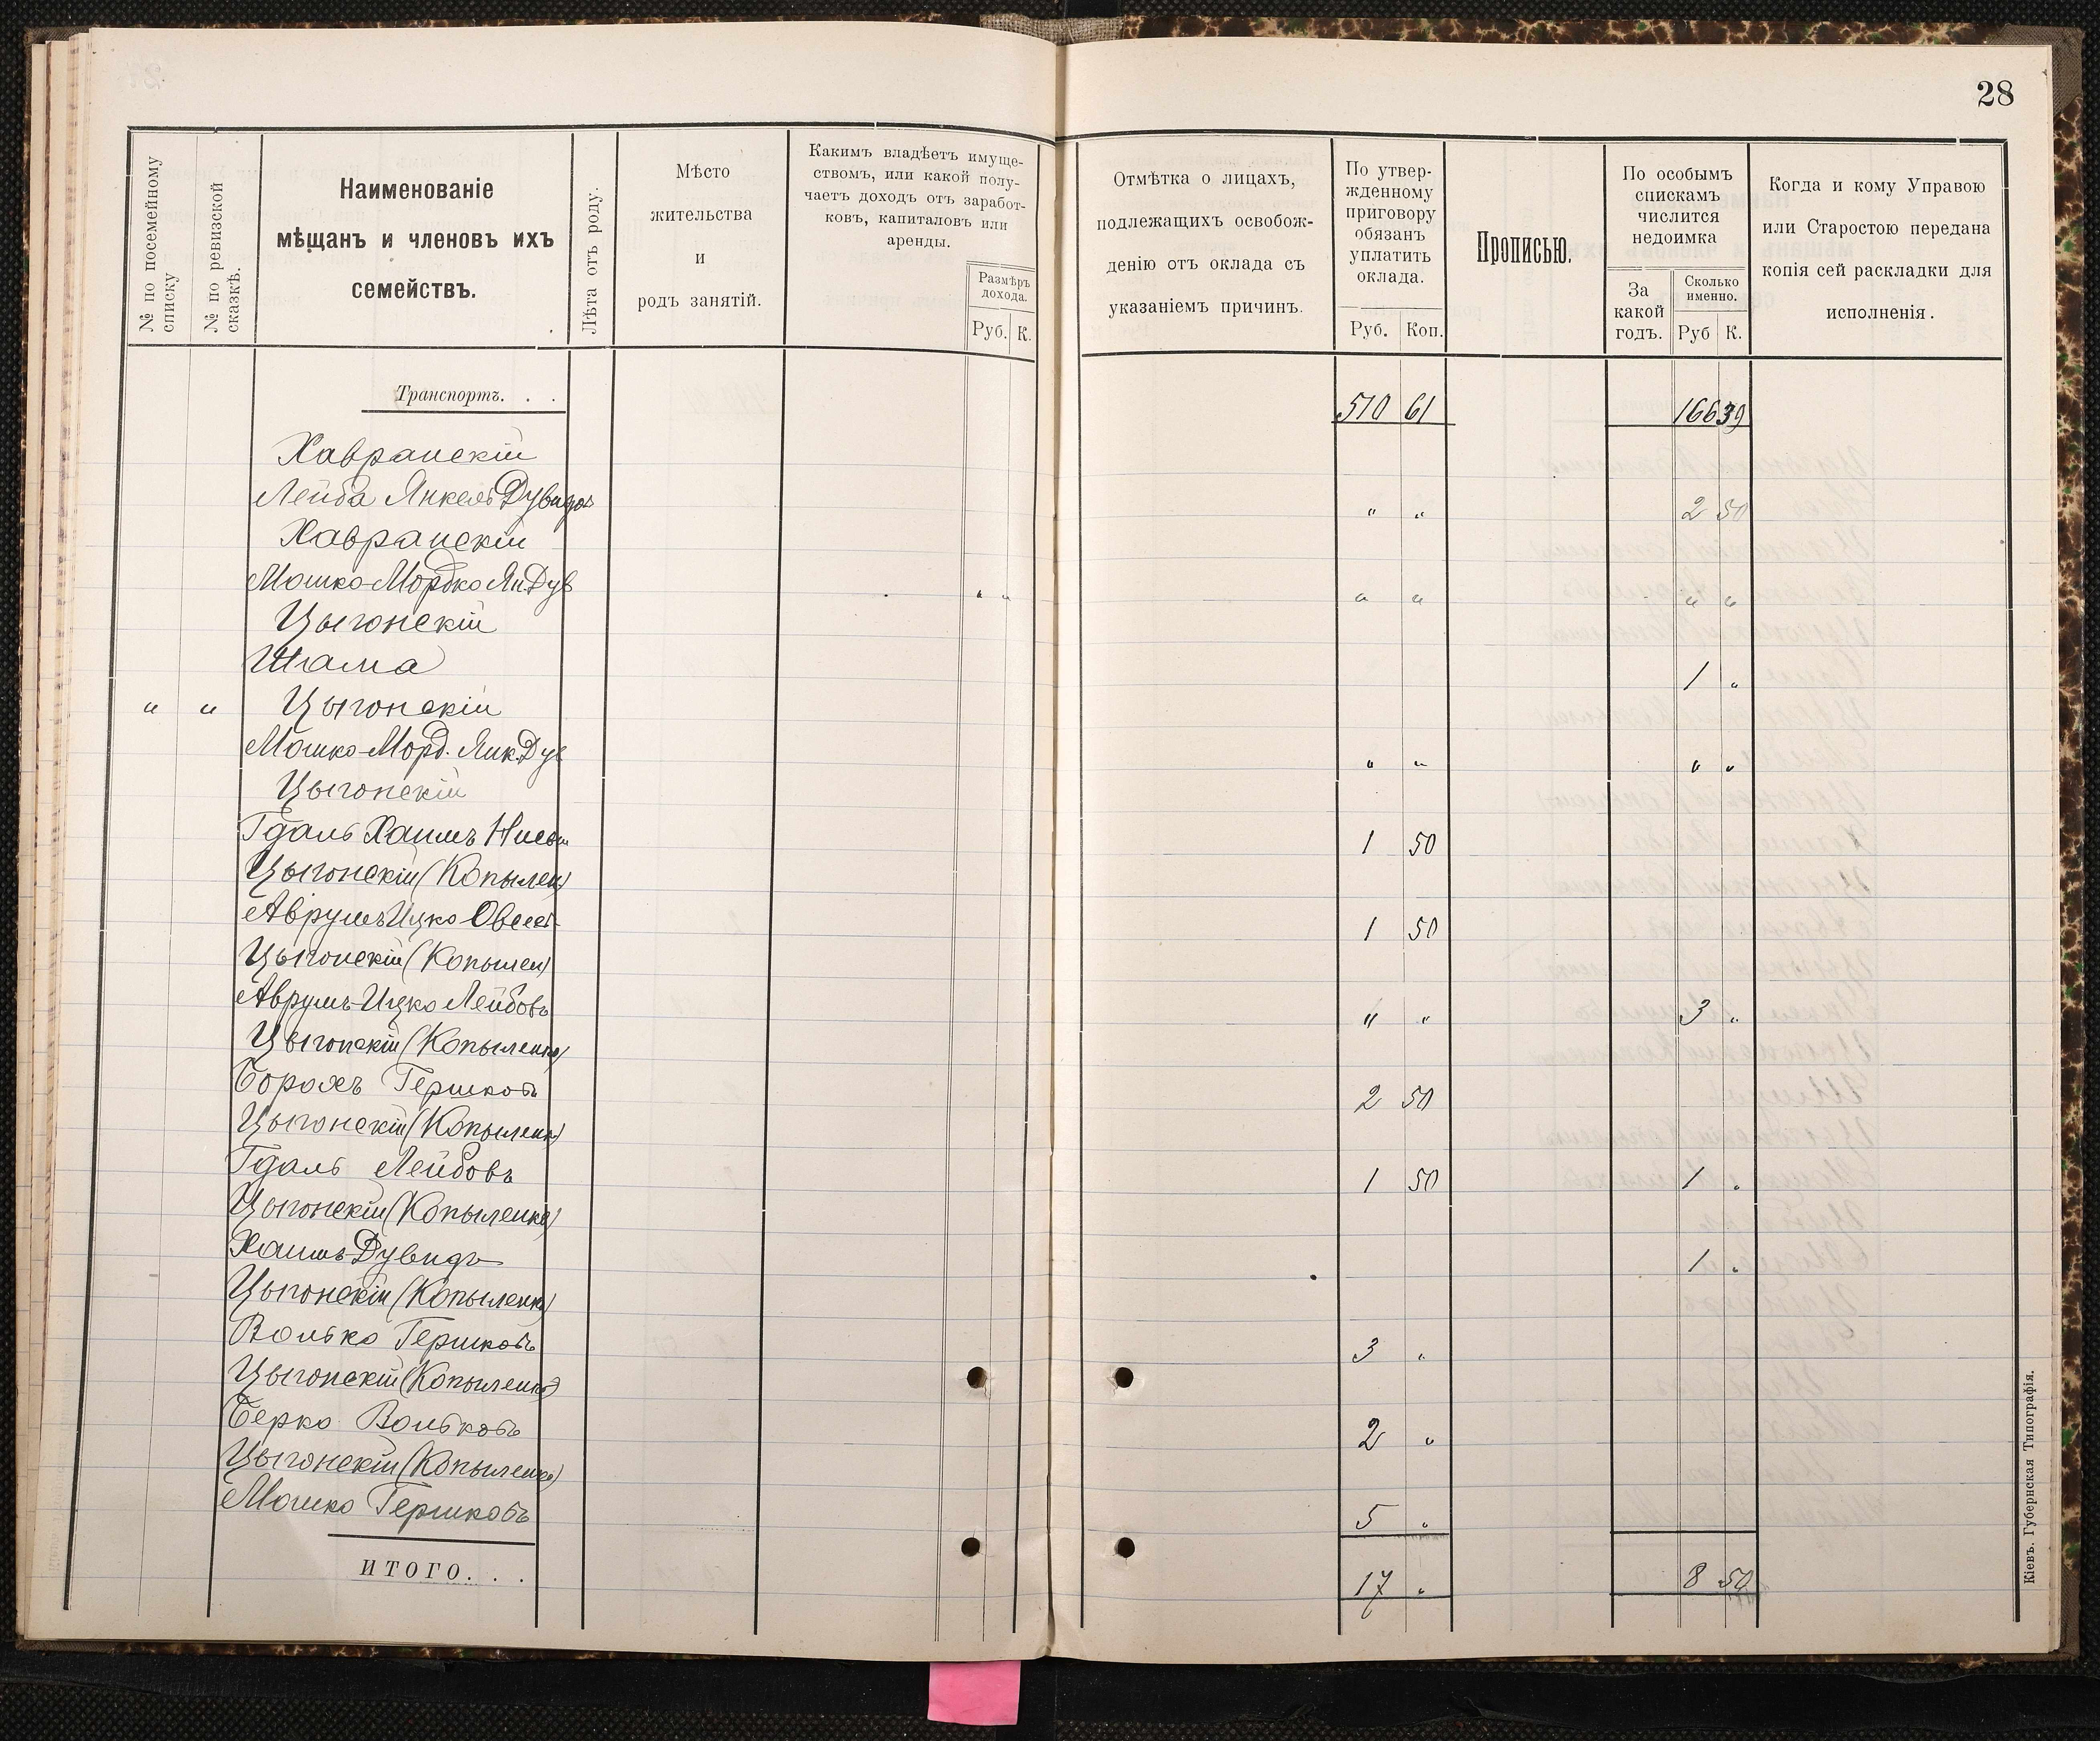 28
№ по посемейному списку
№ по ревизской сказкѣ.
Наименованіе
мѣщанъ и членовъ ихъ
семействъ.
Лѣта отъ роду.
Мѣсто
жительства
и
родъ занятій.
Какимъ владѣетъ имуще-
ствомъ, или какой полу-
чаетъ доходъ отъ заработ-
ковъ, капиталовъ или
аренды.
Размѣръ
дохода.
Руб. К.
Отмѣтка о лицахъ,
подлежащихъ освобож-
денію отъ оклада съ
указаніемъ причинъ.
По утвер-
жденному
приговору
обязанъ
уплатить
оклада.
Руб. Коп.
Прописью.
По особымъ
спискамъ
числится
недоимка
За
какой
годъ.
Сколько
именно.
Руб К.
Когда и кому Управою
или Старостою передана
копія сей раскладки для
исполненія.
Транспортъ. . . 510 61 166 39
Хавранскій
Лейба Янкель Дувидов " " 2 50
Хавранскій
Мошко-Мордко Ян.Дув " " " " " "
Цыгонскій
Шлама 1 "
" " Цыгонскій
Мошко-Морд. Янк.Дув " " " "
Цыгонскій
Гдаль Хаимъ 1 50
Цыгонскій (Копылен)
Аврумъ Ицко Овсее 1 50
Цыгонскій (Копылен)
Аврумъ-Ицко Лейбовъ " " 3 "
Цыгонскій (Копыленко)
Борохъ Гершковъ 2 50
Цыгонскій (Копыленко)
Гдаль Лейбовъ 1 50 1 "
Цыгонскій (Копыленко)
Хаимъ-Дувидъ 1 "
Цыгонскій (Копыленко)
Волько Гершковъ 3 "
Цыгонскій (Копыленко)
Берко Вольковъ 2 "
Цыгонскій (Копыленко)
Мошко Гершковъ 5 "
ИТОГО. . . 17 " 8 50
Кіевъ. Губернская Типографія.